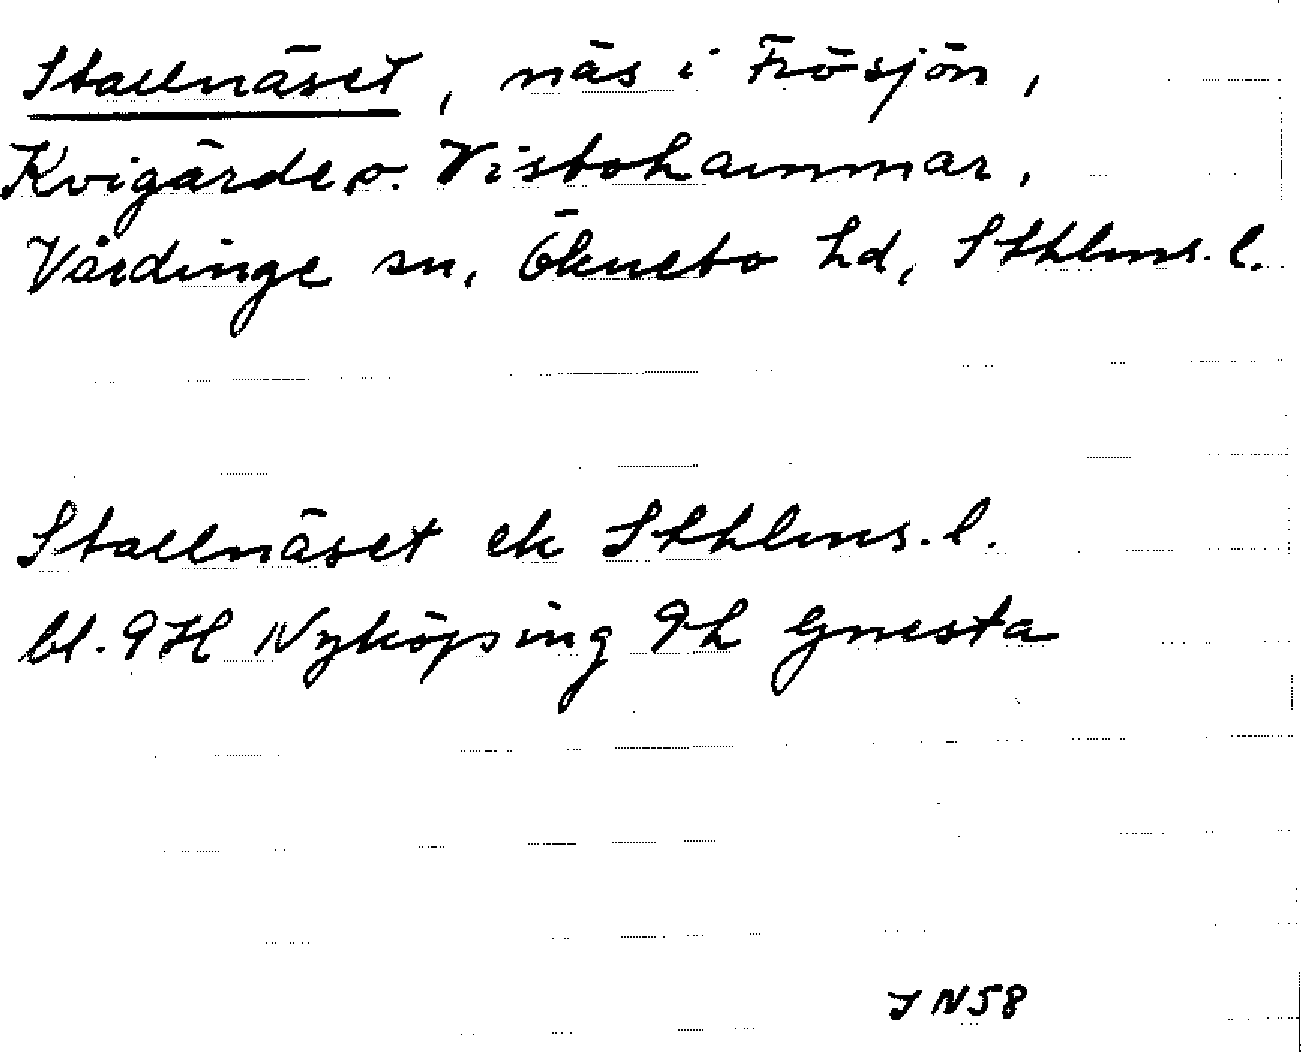 Stallnäset, näs i Frösjön,
Kvigärde o. Visbohammar,
Vårdinge sn, Öknebo hd, Sthlms. l.
Stallnäset ek Sthlms. l.
bl. 9H Nyköping 9h Gnesta
J N 58